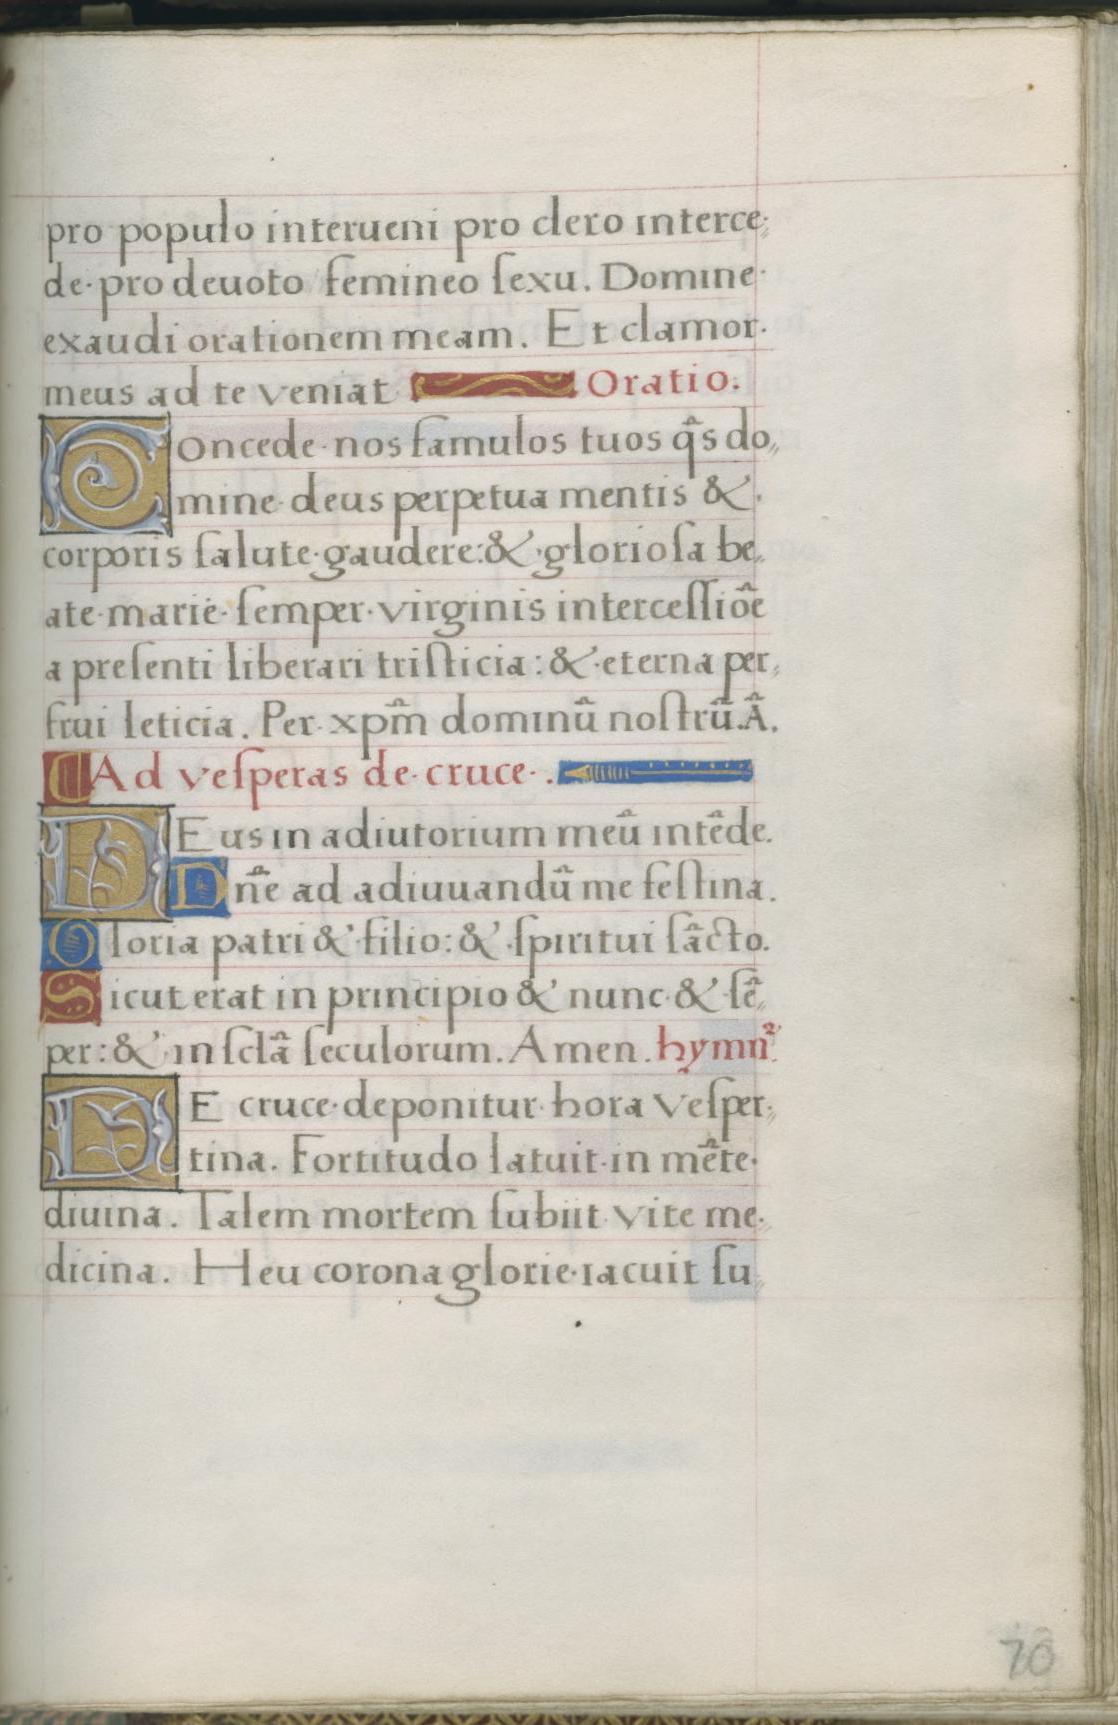 pro populo interueni pro clero interce,
de pro deuoto femineo ſexu. Domine
exaudi orationem meam. Et clamor
meus ad te veniat Oratio.
Concede nos famulos tuos q̃s do,,
mine deus perpetua mentis &
corporis ſalute gaudere: & glorioſa be,,
ate marie ſemper virginis interceſſiõe
a preſenti liberari triſticia: & eterna per,
frui leticia. Per xpm̃ dominũ noſtrũ. Ã.
Ad veſperas de cruce.
DEus in adiutorium meũ intẽde.
Dñe ad adiuuandũ me feſtina.
Gloria patri & filio: & ſpiritui ſãcto.
Sicut erat in principio & nunc & ſẽ,,
per: & in ſclã ſeculorum. Amen. hymñ.
DE cruce deponitur hora veſper,
tina. Fortitudo latuit in mẽte
diuina. Talem mortem ſubiit vite me,
dicina. Heu corona glorie iacuit ſu,,
70